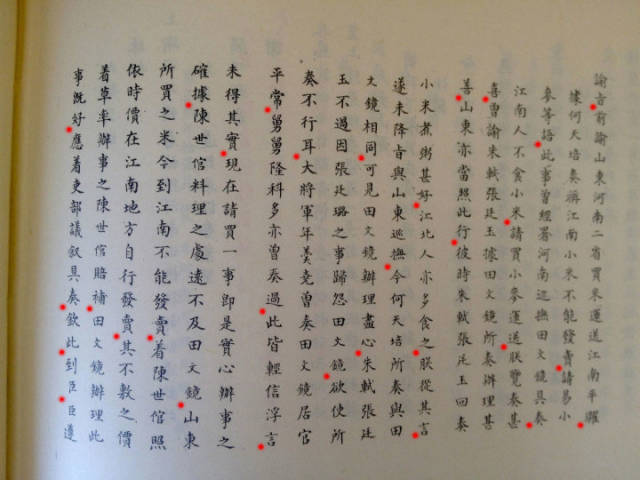 諭旨前諭山東河南二省買米運送江南平糶
據何天培奏稱江南小米不能發賣請易小
麥等語此事曾經署河南巡撫田文鏡具奏
江南人不食小米請買小麥運送朕覽奏甚
喜曾諭朱軾張廷玉據田文鏡所奏辦理甚
善山東亦當照此行彼時朱軾張廷玉回奏
小米煮粥甚好江北人亦多食之朕從其言
遂未降旨與山東巡撫今何天培所奏與田
文鏡相同可見田文鏡辦理盡心朱軾張廷
玉不過因張廷璐之事歸怨田文鏡欲使所
奏不行耳大將軍年羹堯曾奏田文鏡居官
平常舅舅隆科多亦曾奏過此皆輕信浮言
未得其實現在請買一事即是實心辦事之
確據陳世倌料理之處遠不及田文鏡山東
所買之米今到江南不能發賣着陳世倌照
依時價在江南地方自行發賣其不敷之價
着草率辦事之陳世倌賠補田文鏡辦理此
事旣好應着吏部議叙具奏欽此到臣臣遵